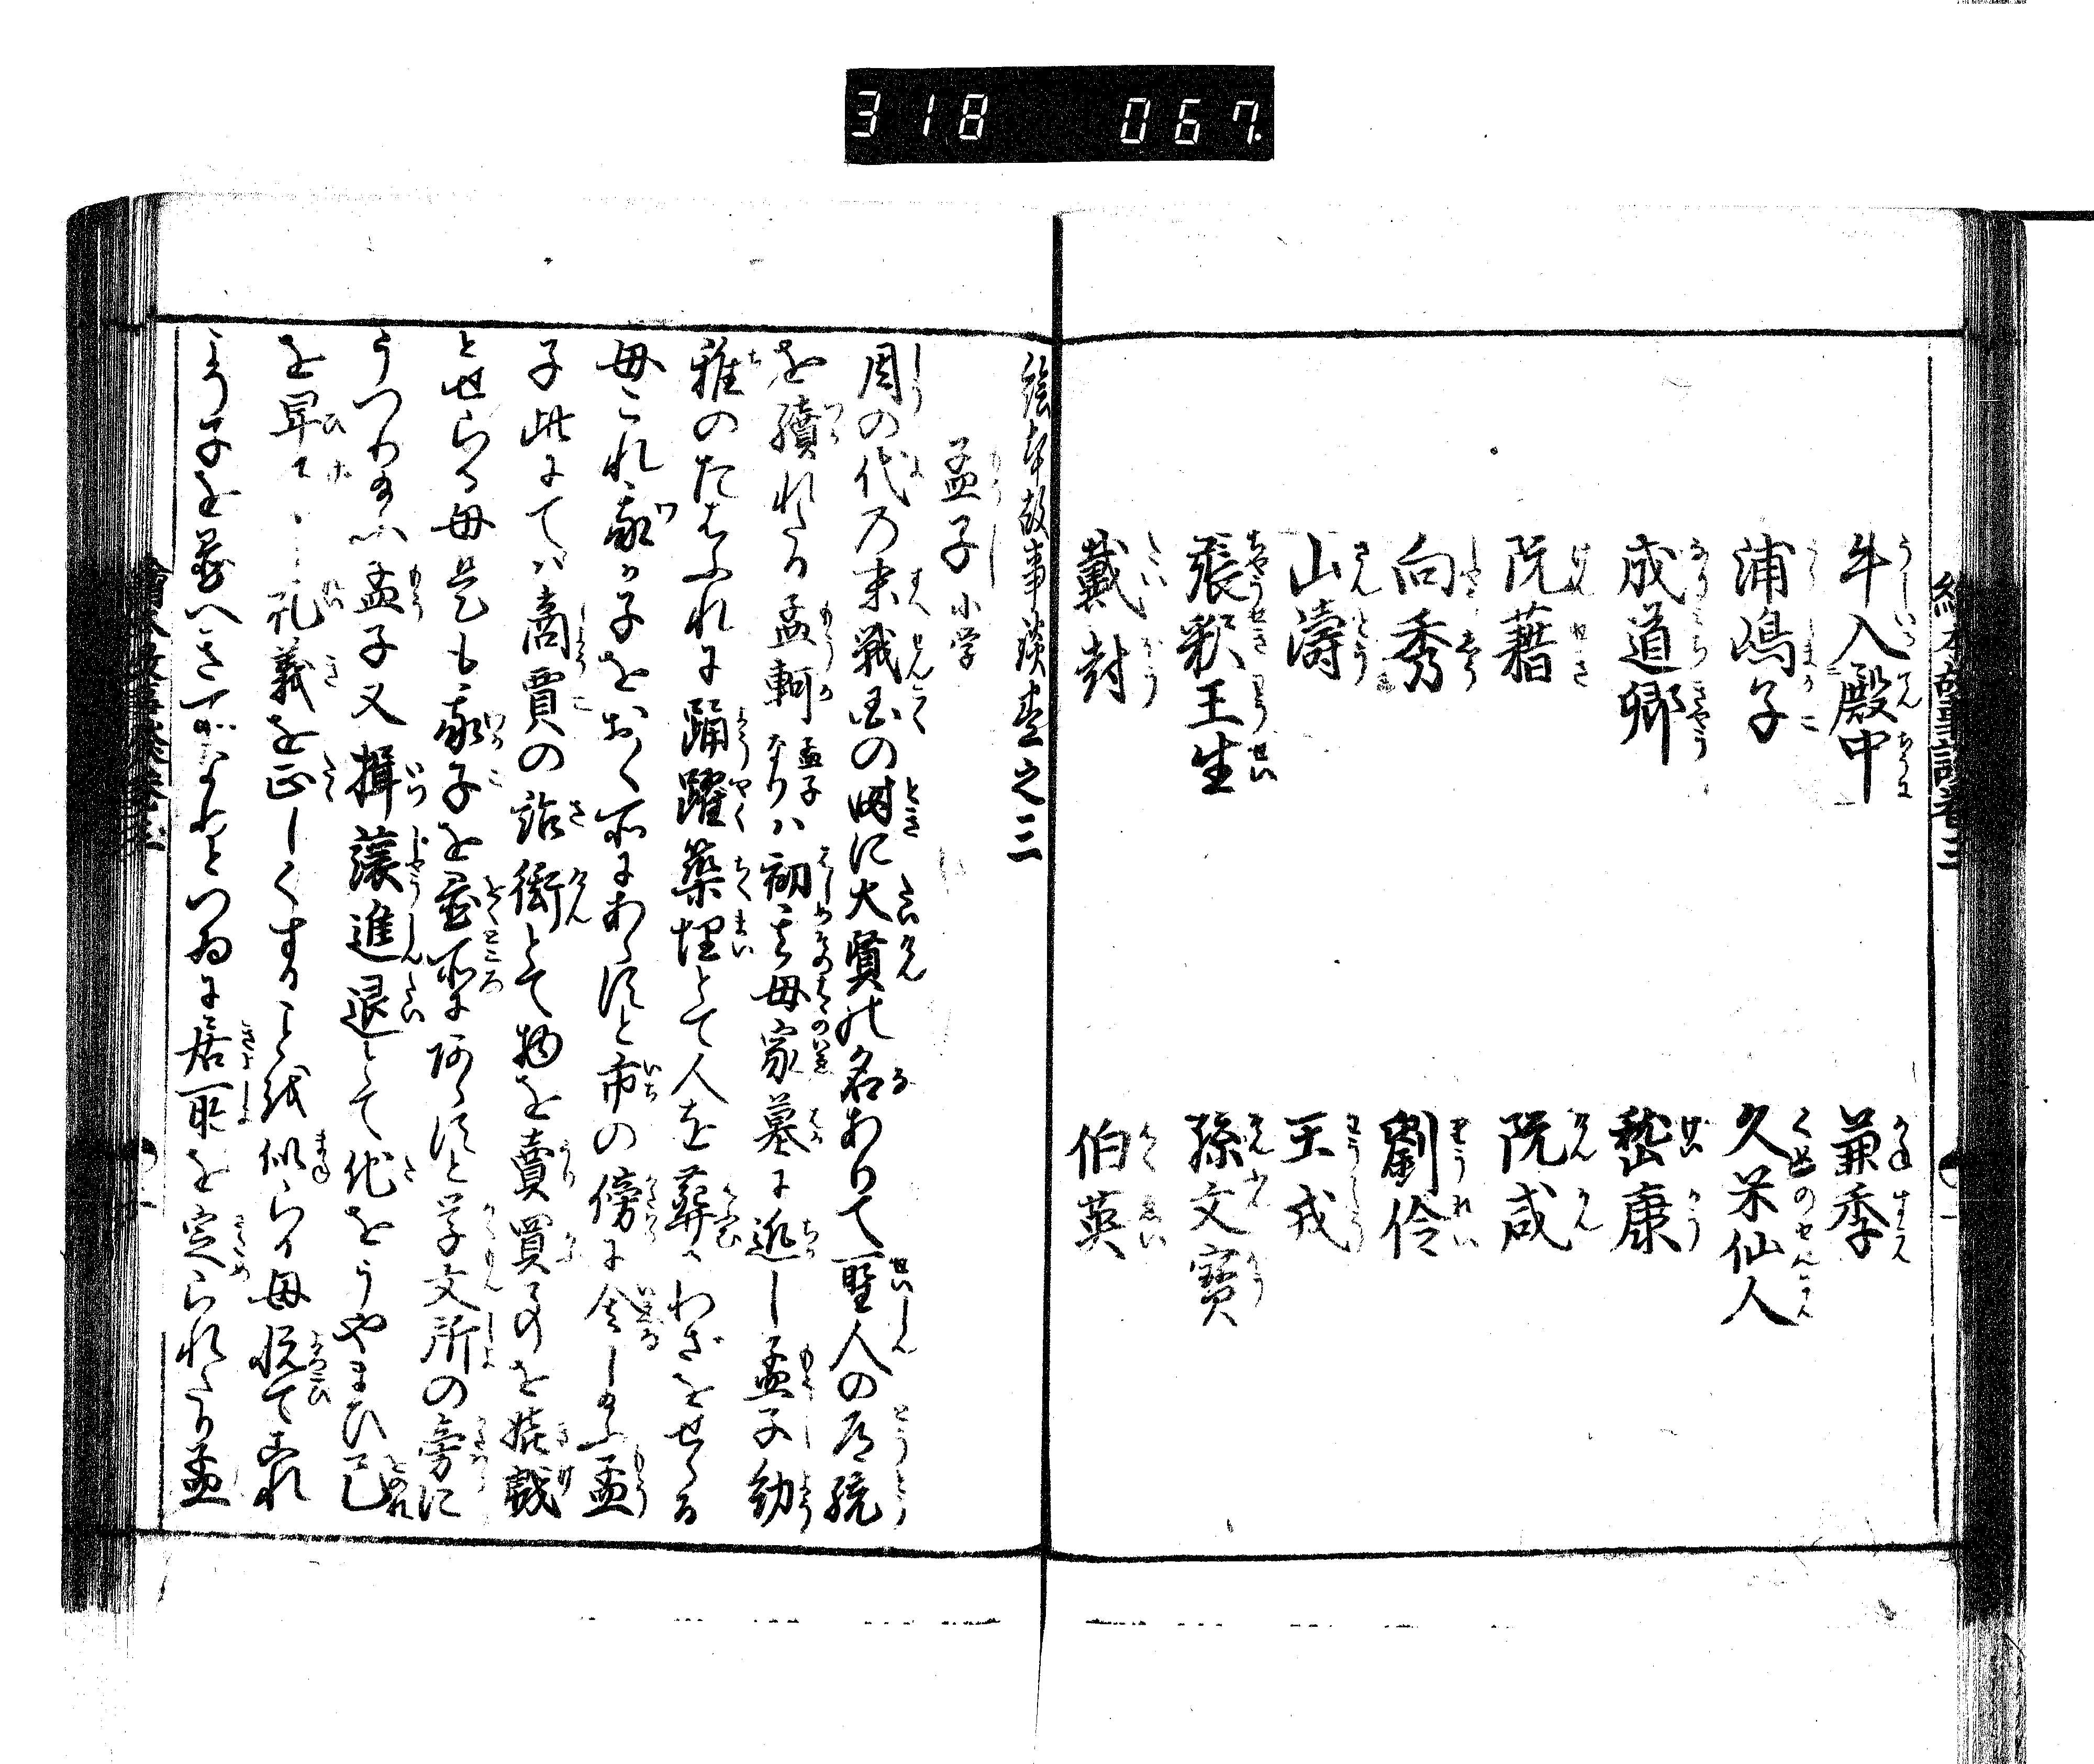 318 067
牛入殿中
兼季
浦嶋子
久米仙人
成道卿
嵆康
阮藉
阮咸
向秀
劉伶
山濤
王戎
張釈王生
孫文寶
戴封
伯英
絵本故事談巻之三
孟子 小学
周の代乃末戦国の時に大賢の名ありて聖人の道統
を續れたる孟軻 孟子なり ハ初其母家墓に近し孟子幼
稚のたはふれに踊躍築埋とて人を葬るわざをせらる
母これ我が子をおく所にあらすと市の傍に舎し給ふ孟
子此にてハ商賈の詒衒とて物を賣買事を嬉戯
とせらる母是も我子を置所にあらすと学文所の旁に
うつり給ふ孟子又揖譲進退とて他をうやまひ己
を卑下し礼義を正しくすることを似らる母悦てこれ
子を置へき
つゐに居所を定られたり孟